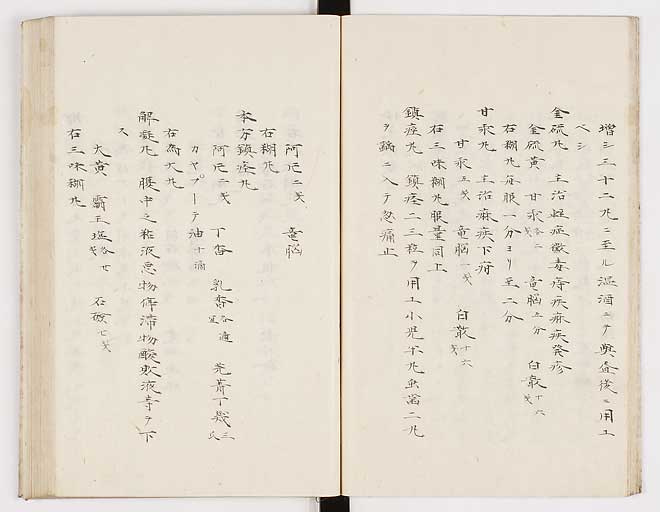 増シ三十二丸ニ至ル温酒ニテ與盃後ニ用エ
ベシ
金硫丸 主治 症黴毒痔疾麻疾発疹
金硫黄 甘汞 各二 竜脳 二分 白 十六
右糊丸毎服一分ヨリ至二分
甘汞丸 主治麻疾下疳
甘汞 五戔 竜脳 一戔 白 十六戔
右三味糊丸服量同上
鎮痙丸 鎮痙二三粒ヲ用エ小児半丸虫歯二丸
ヲ 二入テ忽痛止
阿片 二戔 竜脳
右糊丸
本方鎮痙丸
阿片 二戔 丁香 乳香 各 芫菁丁幾 三
カヤプーテ油 十滴
右為大丸
解凝丸 腹中之粘液悪物停滞物酸敗液等ヲ下
ス
大黄 覇王塩 各七戔 石 七戔
右三味糊丸